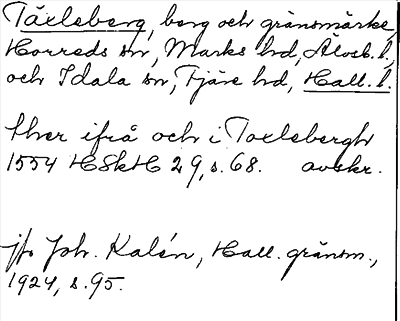 Täxleberg, berg och gränsmärke,
Horreds sn, Marks hd, Älvsb. l.,
och Idala sn, Fjäre hd, Hall. l.
ther ifrå och i Toxlebergh
1554 HSkH 29, s. 68. avskr.
jfr Joh. Kalén, Hall. gränsm.,
1924, s. 95.